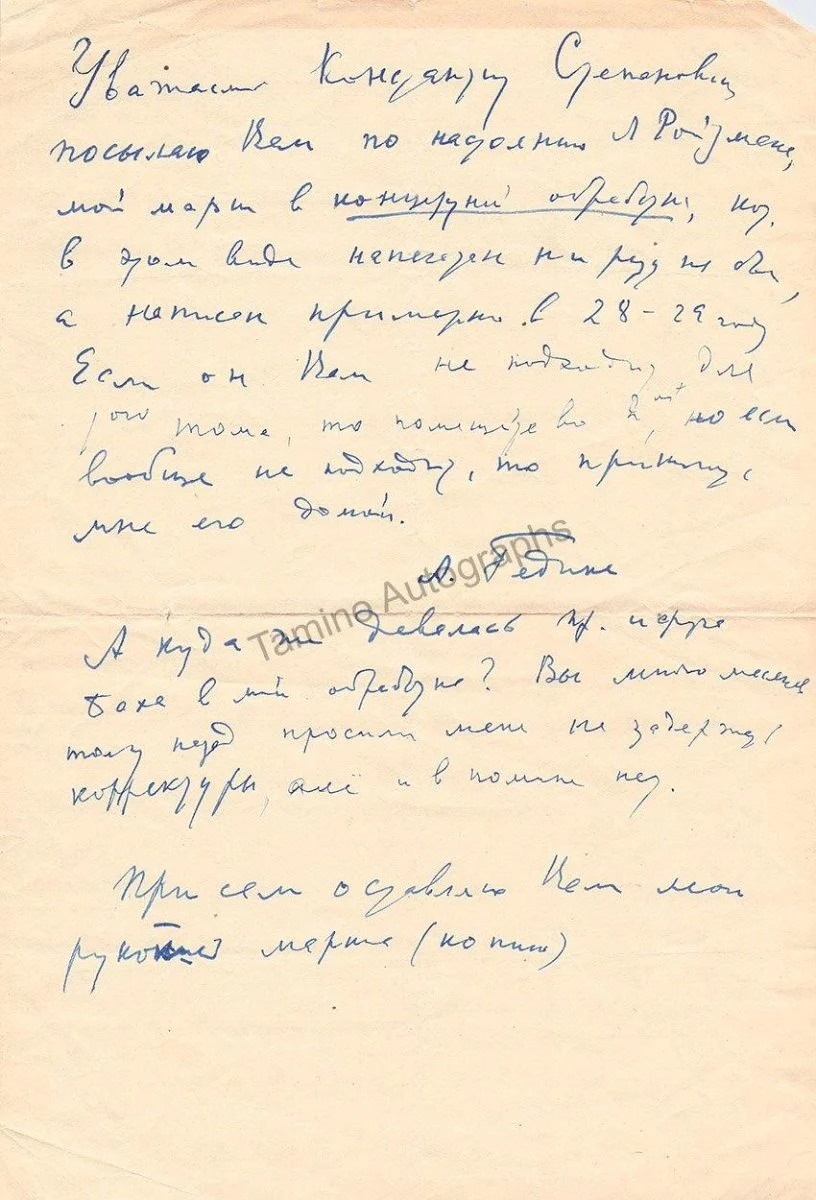 Уважаемый Константин Степанович
посылаю Вам по настоянию Л Ройзмана,
мой марш в концертной обработке, кот.
в этом виде напечатан ни разу не был,
а написан примерно в 28-29 году
Если он Вам не подходит для
этого тома, то поместите во 2й, но если
вообще не подходит, то пришлите
мне его домой.
А. Гедике
Tamino Autographs
А куда же девалась
Баха в моей обработке? Вы много месяцев
тому назад просили меня не задержать
корректуры, а её и в помине нет.
При сем оставляю Вам мои
марша (копию)